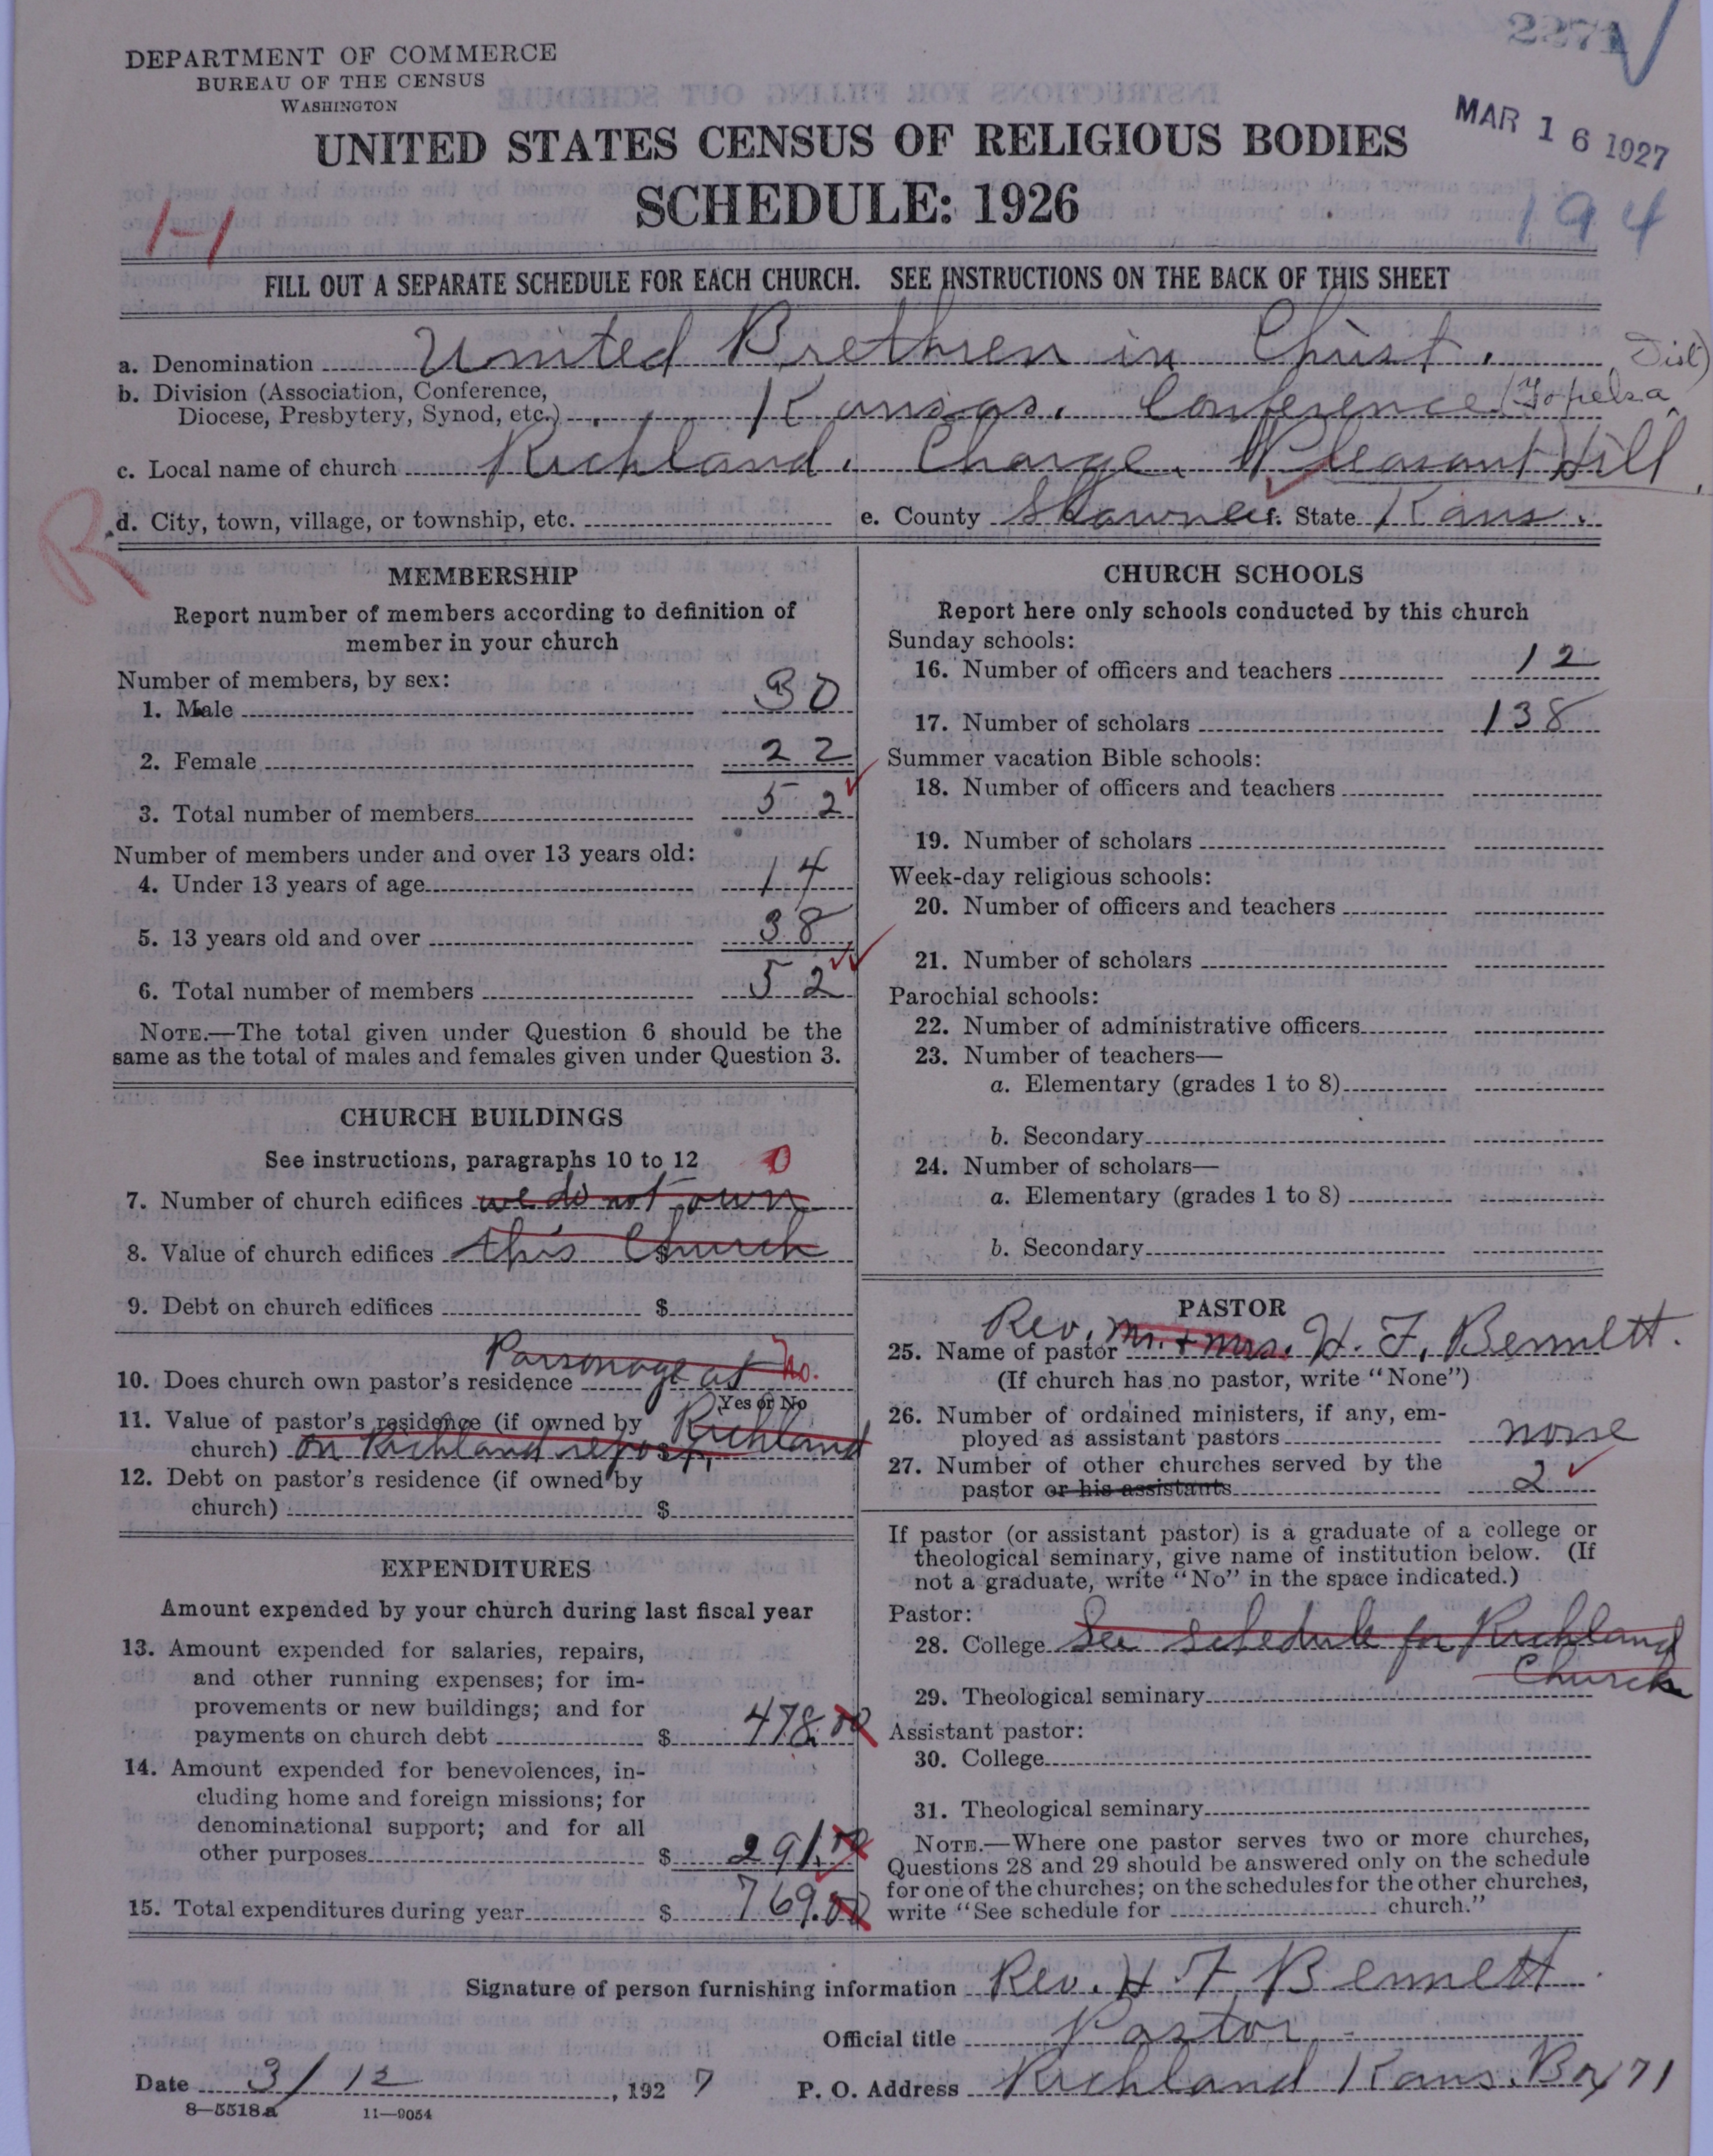 2271
DEPARTMENT OF COMMERCE
BUREAU OF THE CENSUS
WASHINGTON
MAR 16 1927
UNITED STATES CENSUS OF RELIGIOUS BODIES
SCHEDULE: 1926
194
1-1
FILL OUT A SEPARATE SCHEDULE FOR EACH CHURCH. SEE INSTRUCTIONS ON THE BACK OF THIS SHEET
a. Denomination United Brethren in Christ.
b. Division (Association, Conference, Diocese, Presbytery, Synod, etc.) Kansas. Conference (Topeka Dist)
c. Local name of church Richland. Charge. Pleasant Hill.
R
d. City, town, village, or township, etc. e. County Shawnee f. State Kans.
MEMBERSHIP
Report number of members according to definition of
member in your church
Number of members, by sex:
1. Male 30
2. Female 22
3. Total number of members 52
Number of members under and over 13 years old:
4. Under 13 years of age 14
5. 13 years old and over 38
6. Total number of members 52
NOTE.—The total given under Question 6 should be the
same as the total of males and females given under Question 3.
CHURCH BUILDINGS
See instructions, paragraphs 10 to 12 0
7. Number of church edifices we do not own
8. Value of church edifices $ this Church
9. Debt on church edifices $
10. Does church own pastor's residence Parsonage at No.
Yes or No
11. Value of pastor's residence (if owned by Richland
church) on Richland report.
12. Debt on pastor's residence (if owned by
church) $
EXPENDITURES
Amount expended by your church during last fiscal year
13. Amount expended for salaries, repairs,
and other running expenses; for im-
provements or new buildings; and for
payments on church debt $ 478.00
14. Amount expended for benevolences, in-
cluding home and foreign missions; for
denominational support; and for all
other purposes $ 291.00
15. Total expenditures during year $ 769.00
CHURCH SCHOOLS
Report here only schools conducted by this church
Sunday schools:
16. Number of officers and teachers 12
17. Number of scholars 138
Summer vacation Bible schools:
18. Number of officers and teachers
19. Number of scholars
Week-day religious schools:
20. Number of officers and teachers
21. Number of scholars
Parochial schools:
22. Number of administrative officers
23. Number of teachers—
a. Elementary (grades 1 to 8)
b. Secondary
24. Number of scholars—
a. Elementary (grades 1 to 8)
b. Secondary
PASTOR
25. Name of pastor Rev. Mr. + Mrs. H. F. Bennett.
(If church has no pastor, write "None")
26. Number of ordained ministers, if any, em-
ployed as assistant pastors none
27. Number of other churches served by the
pastor or his assistants 2
If pastor (or assistant pastor) is a graduate of a college or
theological seminary, give name of institution below. (If
not a graduate, write "No" in the space indicated.)
Pastor:
28. College See schedule for Richland
Church
29. Theological seminary
Assistant pastor:
30. College
31. Theological seminary
NOTE.—Where one pastor serves two or more churches,
Questions 28 and 29 should be answered only on the schedule
for one of the churches; on the schedules for the other churches,
write "See schedule for church."
Signature of person furnishing information Rev. H. F. Bennett.
Official title Pastor
Date 3/12, 1927 P. O. Address Richland Kans. Box 71
8—5518a 11—9054